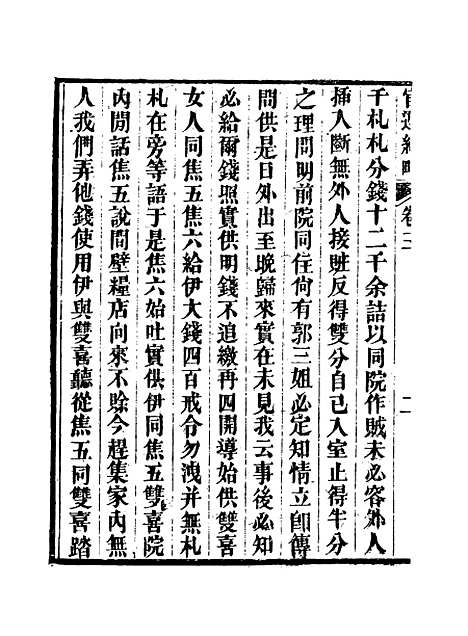 卷二
二
千札札分錢十二千余詰以同院作賊未必容外人
插人斷無外人接贓反得雙分自己入室止得半分
之理問明前院同住尙有郭三姐必定知情立卽傳
問供是日外出至晚歸來實在未見我云事後必知
必給爾錢照實供明錢不追繳再四開導始供雙喜
女人同焦五焦六給伊大錢四百戒令勿洩并無札
札在旁等語于是焦六始吐實供伊同焦五雙喜院
內閒話焦五說間壁糧店向來不賒今趕集家內無
人我們弄他錢使用伊與雙喜聽從焦五同雙喜踏